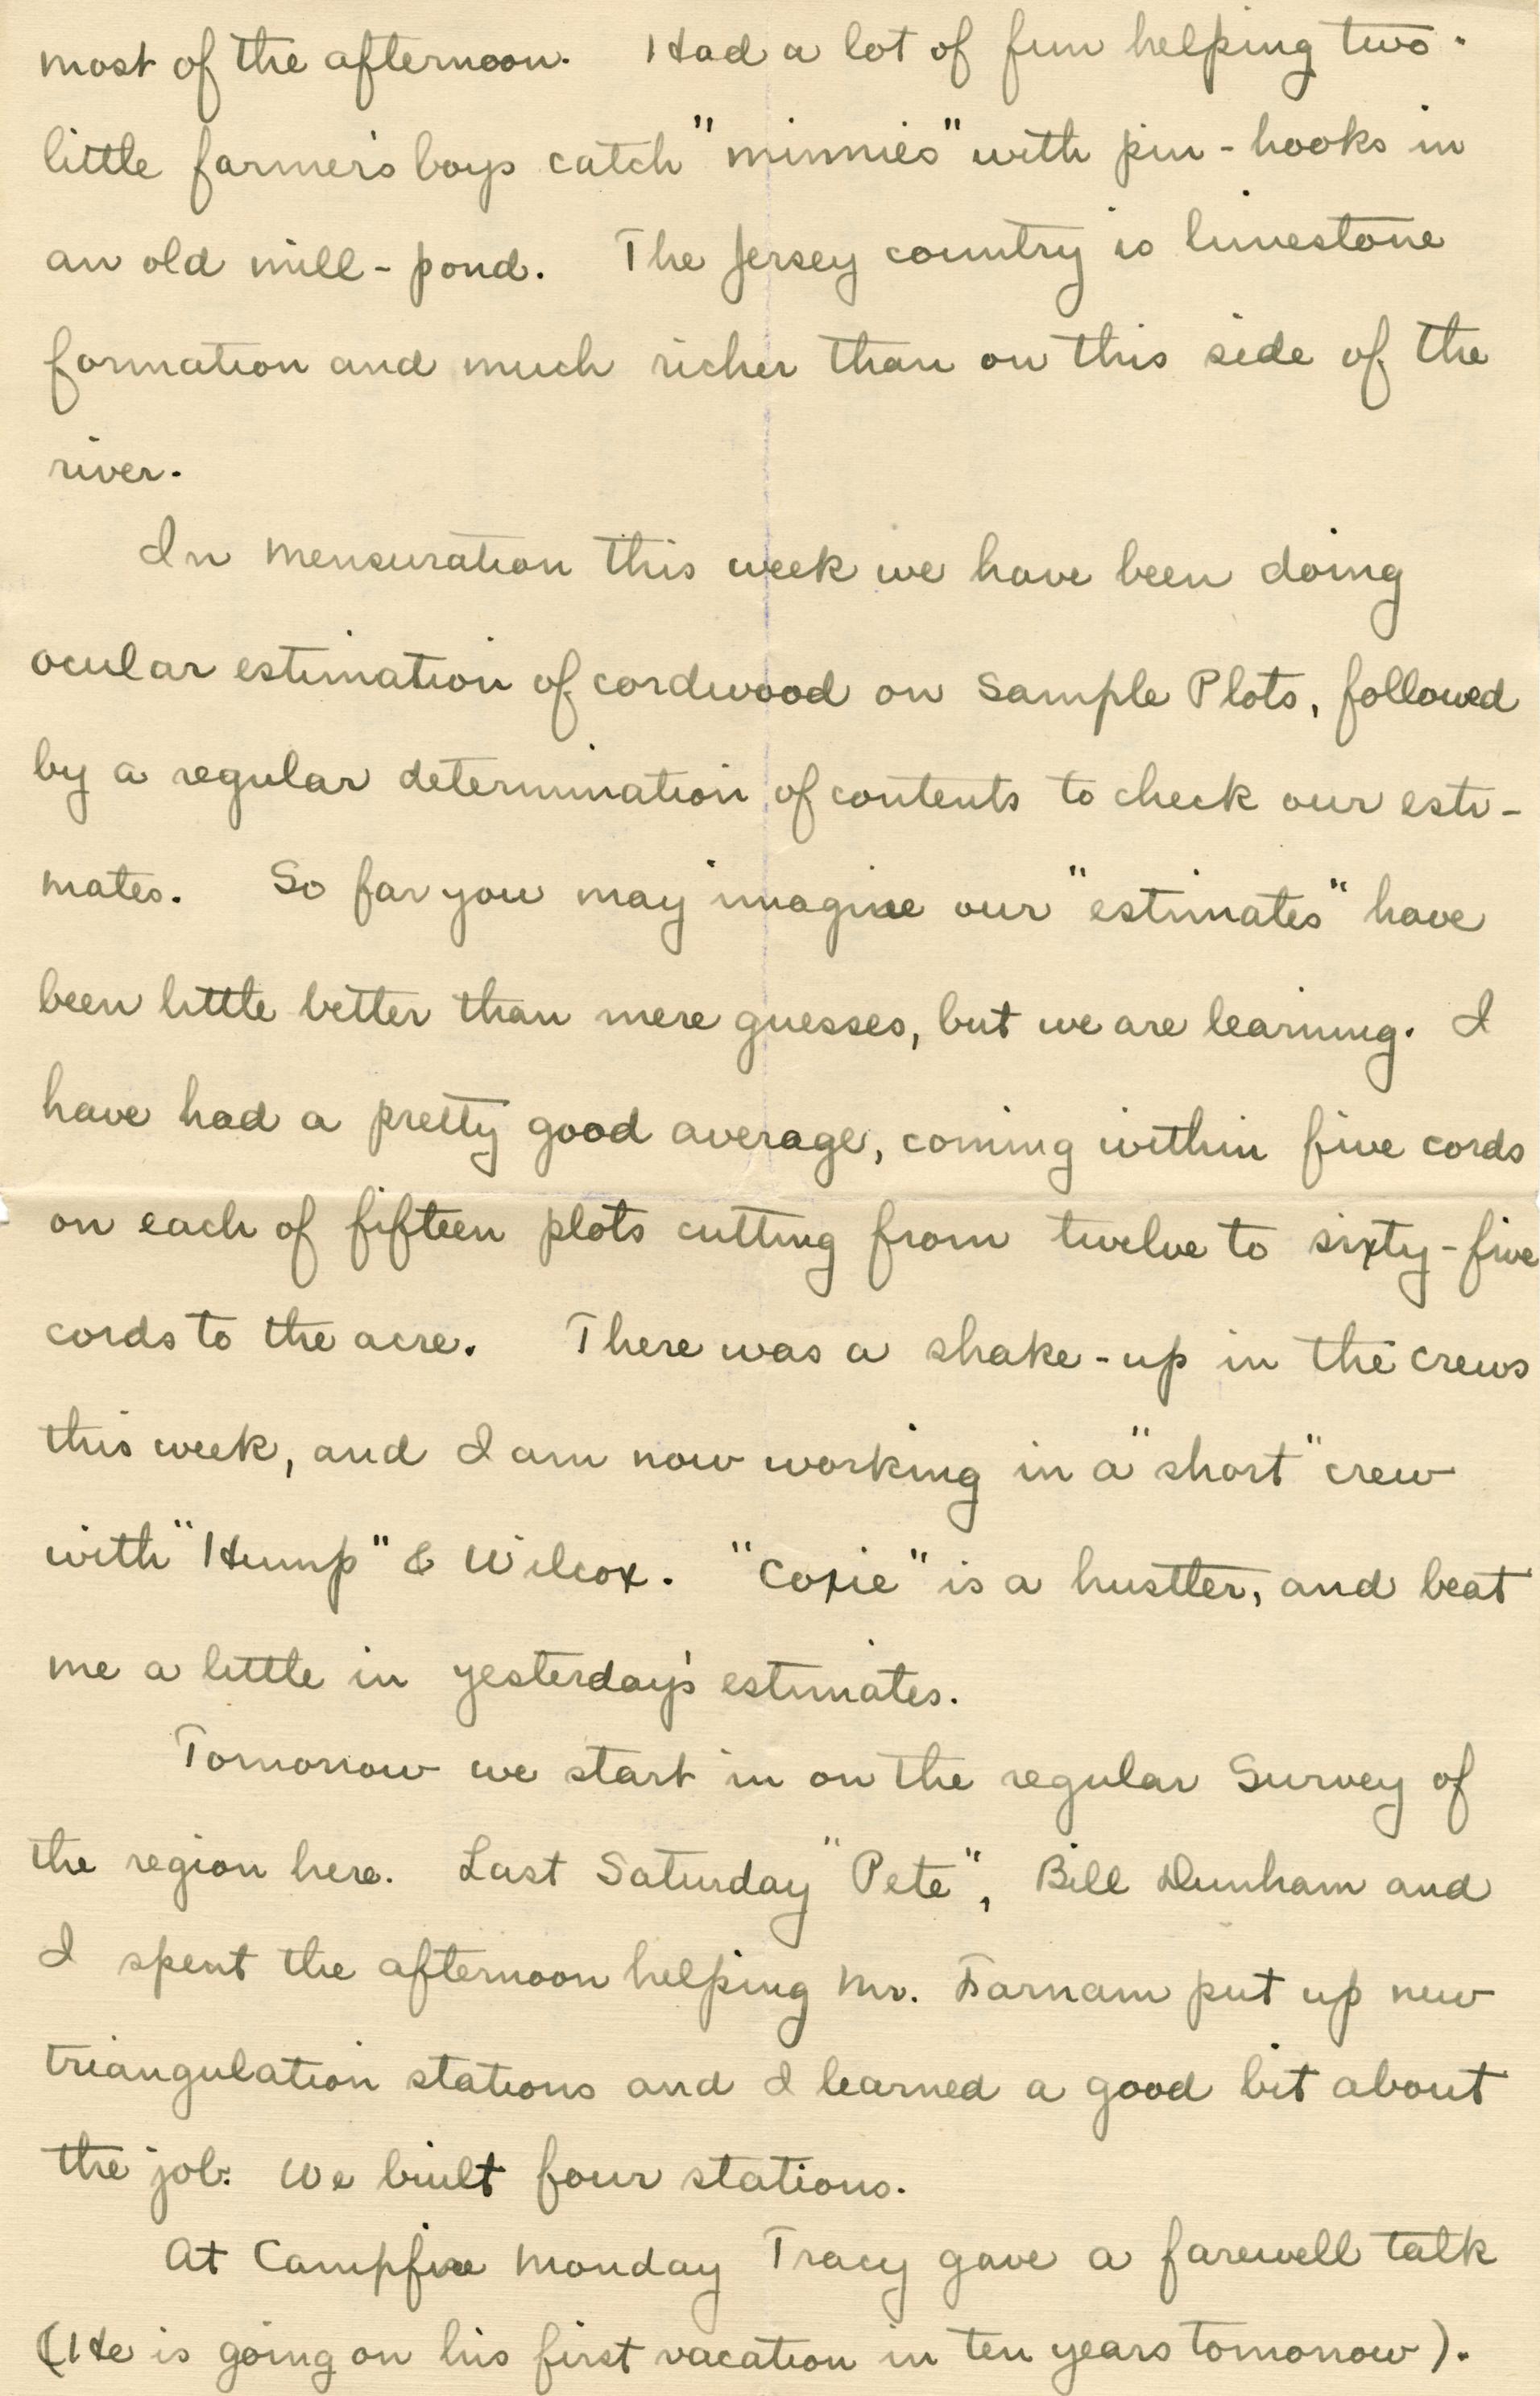 most of the afternoon. Had a lot of fun helping two
little farmer's boys catch "minnies" with pin-hooks in
an old mill-pond. The Jersey country is limestone
formation and much richer than on this side of the
river.
In Mensuration this week we have been doing
ocular estimation of cordwood on Sample Plots, followed
by a regular determination of contents to check our esti-
mates. So far you may imagine our "estimates" have
been little better than mere guesses, but we are learning. I
have had a pretty good average, coming within five cords
on each of fifteen plots cutting from twelve to sixty-five
cords to the acre. There was a shake-up in the crews
this week, and I am now working in a "short" crew
with "Hump" & Wilcox. "Coxie" is a hustler, and beat
me a little in yesterday's estimates.
Tomorrow we start in on the regular Survey of
the region here. Last Saturday "Pete", Bill Dunham and
I spent the afternoon helping Mr. Farnam put up new
triangulation stations and I learned a good bit about
the job. We built four stations.
At Campfire Monday Tracy gave a farewell talk
(He is going on his first vacation in ten years tomorrow).